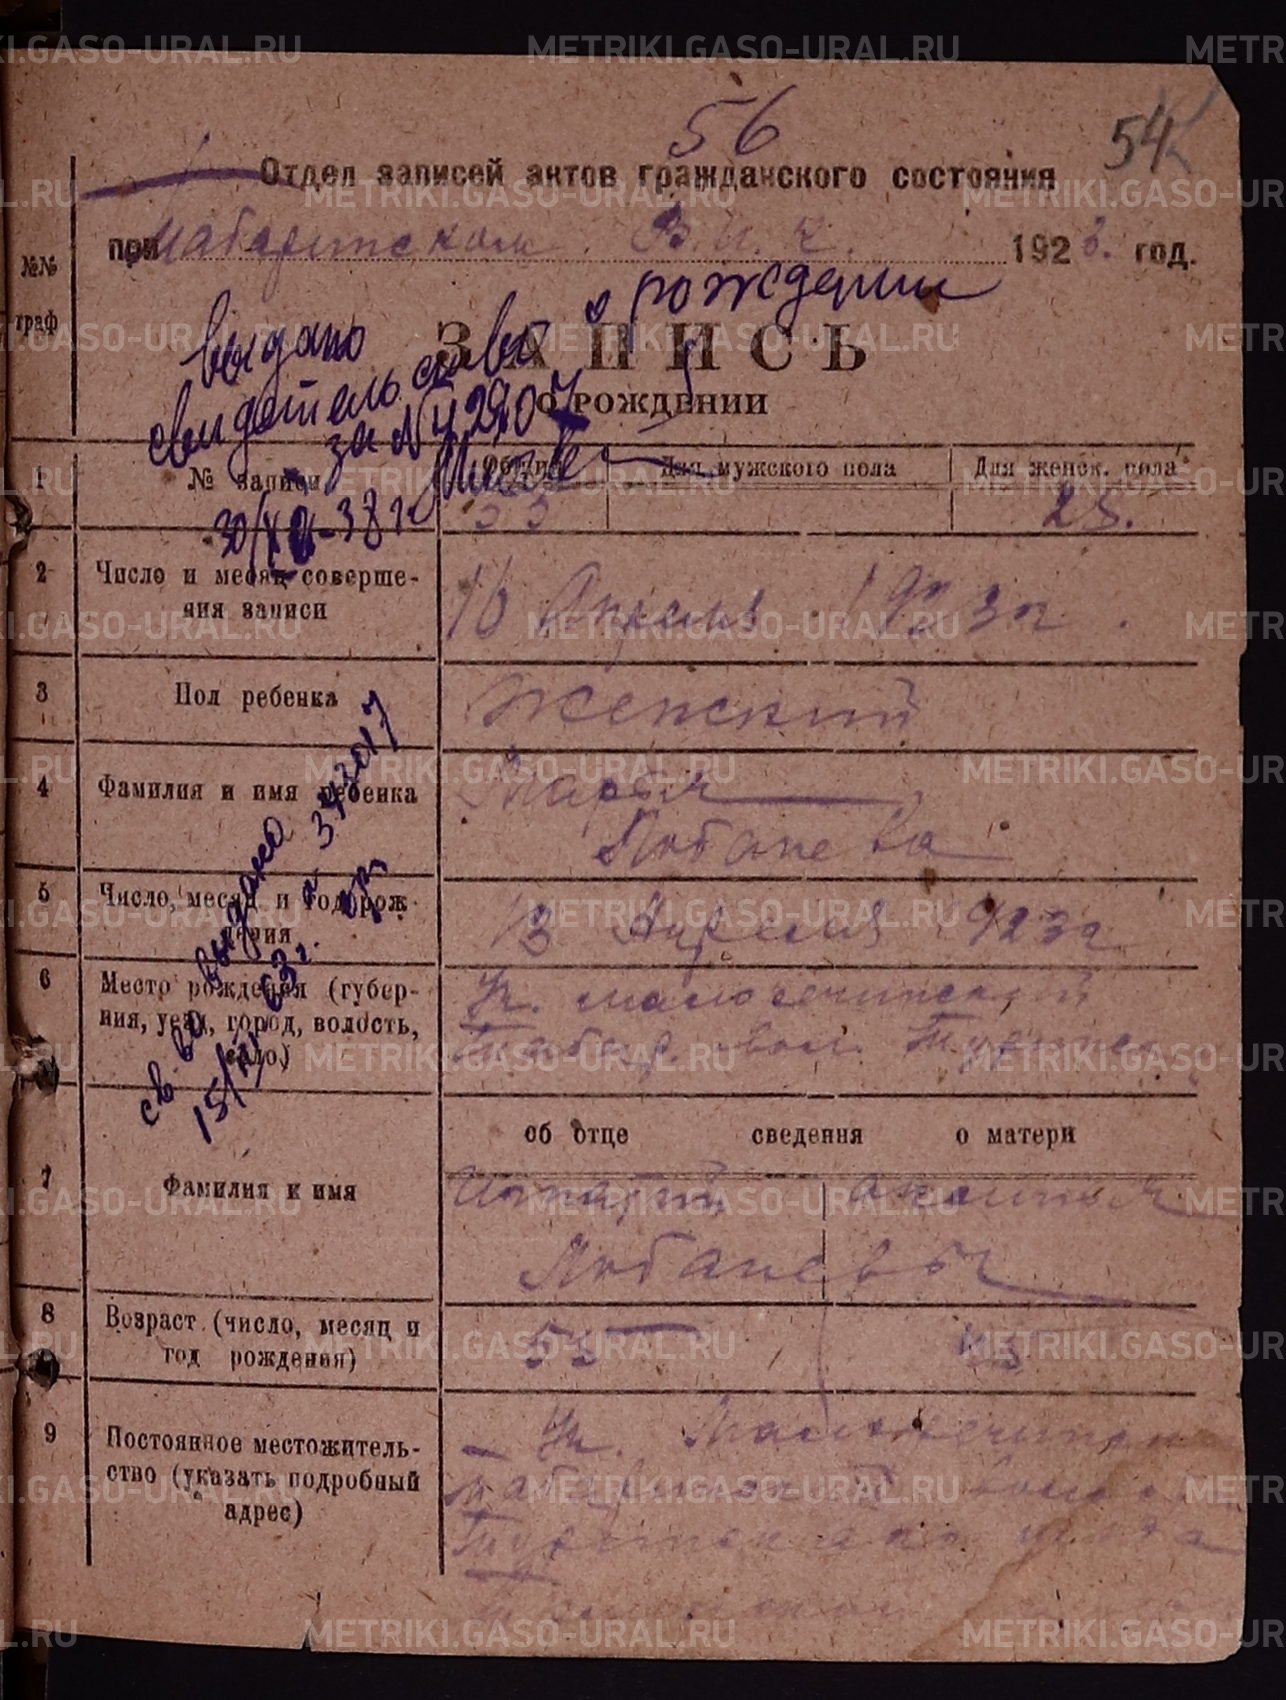 METRIKI.GASO-URAL.RU
56
54
Отдел записей актов гражданского состояния
при Табаринском В. И. К. 1923. год.
№№ граф
выдано
свидетельство о рождении
за №
30/XII-38 г.
ЗАПИСЬ
О РОЖДЕНИИ
1 № записи Общий Для мужского пола Для женск. пола
55 25.
2 Число и месяц соверше-
ния записи
16 Апреля 1923 г.
3 Пол ребенка Женский
4 Фамилия и имя ребенка Марья
Лобанева
5 Число, месяц и год рож-
дения
13 Апреля 1923 г.
6 Место рождения (губер-
ния, уезд, город, волость,
село)
Табар. вол. Туринск.
св-во выдано
об отце сведения о матери
7 Фамилия и имя
Лобаневы
8 Возраст (число, месяц и
год рождения)
53 43
9 Постоянное местожитель-
ство (указать подробный
адрес)
Табаринской
Туринского уезда